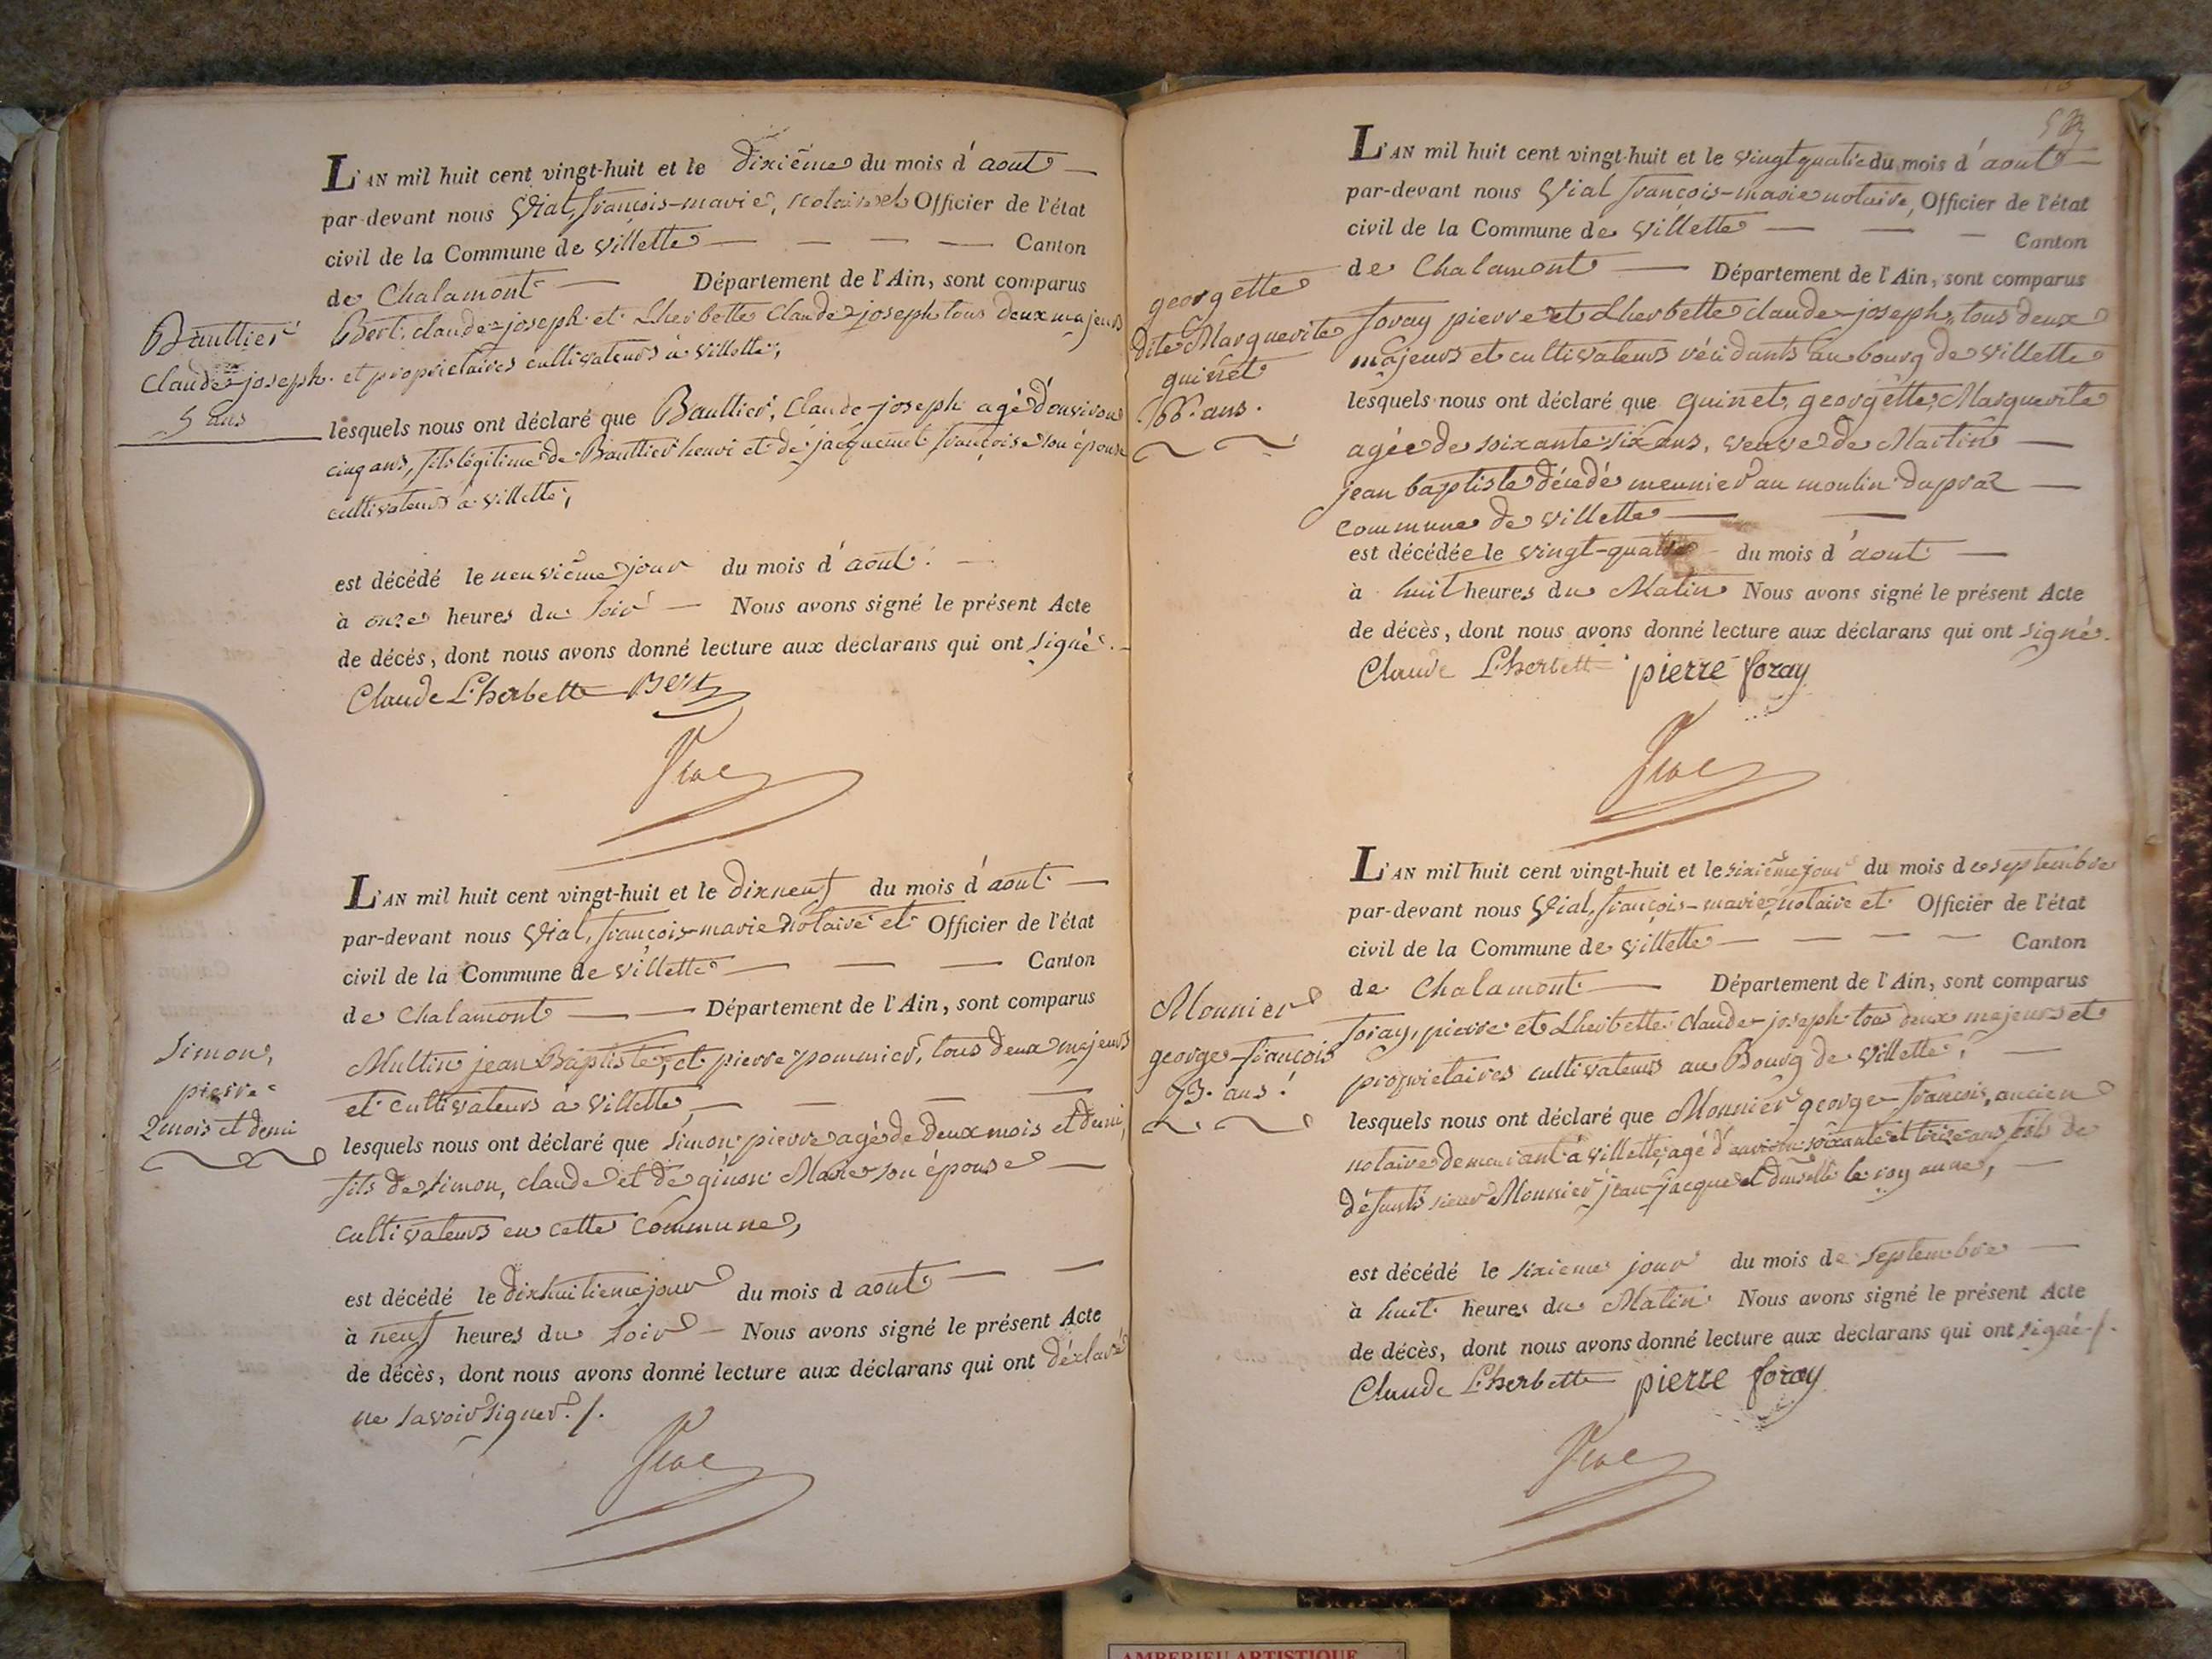 L'AN mil huit cent vingt-huit et le dixiéme du mois d'aout
par-devant nous Vial, françois-marie, notaire et Officier de l'état
civil de la Commune de villette Canton
de Chalamont Département de l'Ain, sont comparus
Bert, claude-joseph et Lherbette Claude-joseph tous deux majeurs
et proprietaires cultivateurs à villette,
Baultier
Claude-joseph
5 ans
lesquels nous ont déclaré que Baultier, Claude-joseph agé d'environ
cinq ans, fils légitime de Baultier henri et de jacquemet françoise son épouse
cultivateurs à villette,
est décédé le neuvième jour du mois d'aout.
à onze heures du soir Nous avons signé le présent Acte
de décès, dont nous avons donné lecture aux déclarans qui ont signé.
Claude L'herbette Bert
Vial
L'AN mil huit cent vingt-huit et le dix neuf du mois d'aout
par-devant nous Vial, françois-marie notaire et Officier de l'état
civil de la Commune de villette Canton
de Chalamont Département de l'Ain, sont comparus
Multin jean Baptiste, et pierre pommier, tous deux majeurs
et cultivateurs à villette
Simon,
pierre
2 mois et demi
lesquels nous ont déclaré que simon pierre agé de deux mois et demi,
fils de simon, claude et de ginon Marie son épouse
cultivateurs en cette commune,
est décédé le dix huitieme jour du mois d aout
à neuf heures du soir Nous avons signé le présent Acte
de décès, dont nous avons donné lecture aux déclarans qui ont déclaré
ne savoir signer ./.
Vial
L'AN mil huit cent vingt-huit et le vingt quatre du mois d'aout
par-devant nous Vial françois-marie notaire, Officier de l'état
civil de la Commune de villette Canton
de Chalamont Département de l'Ain, sont comparus
foray pierre et Lherbette claude-joseph, tous deux
majeurs et cultivateurs résidants au bourg de villette
georgette
dite Marguerite
guinet
66. ans.
lesquels nous ont déclaré que guinet, georgette, Marguerite
agée de soixante six ans, veuve de Martin
jean baptiste décédé meunier au moulin dupraz
commune de villette
est décédée le vingt-quatre du mois d'aout
à huit heures du Matin Nous avons signé le présent Acte
de décès, dont nous avons donné lecture aux déclarans qui ont signé.
Claude L'herbette pierre foray
Vial
L'AN mil huit cent vingt-huit et le sixième jour du mois de septembre
par-devant nous Vial, françois-marie, notaire et Officier de l'état
civil de la Commune de villette Canton
de Chalamont Département de l'Ain, sont comparus
foray, pierre et Lherbette claude-joseph tous deux majeurs et
proprietaires cultivateurs au Bourg de villette,
Monnier
george-françois
73. ans.
lesquels nous ont déclaré que Monnier george françois, ancien
notaire demeurant à villette, agé d'environ soixante et treize ans, fils de
défunts sieur Monnier jean-jacque et dmselle le roy anne,
est décédé le sixieme jour du mois de septembre
à huit heures du Matin Nous avons signé le présent Acte
de décès, dont nous avons donné lecture aux déclarans qui ont signé ./.
Claude L'herbette pierre foray
Vial
AMBERIEU ARTISTIQUE